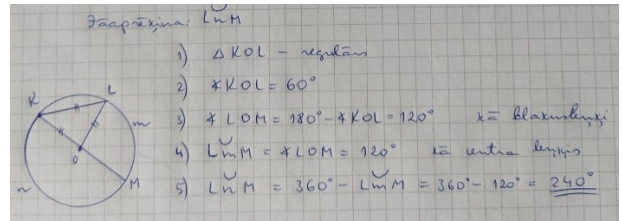 Jāaprēķina: L͝nM
1) △KOL - regulārs
2) ∢KOL = 60°
3) ∢LOM = 180° - ∢KOL = 120° kā blakusleņķi
4) L͝mM = ∢LOM = 120° kā centra leņķis
5) L͝nM = 360° - L͝mM = 360° - 120° = 240°
K
L
m
O
M
n